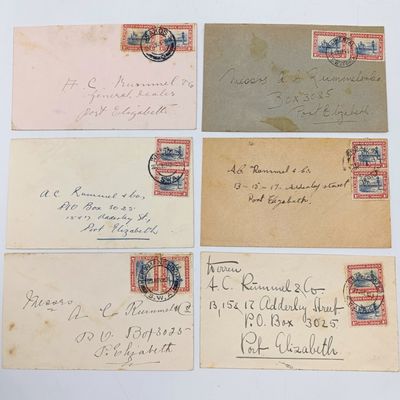 A. C. Rummel & Co
General Dealer
Port Elizabeth
Messrs A C Rummel & Co
Box 3025
Port Elizabeth.
A.C. Rummel & Co,
P.O Box 3025
15 & 17 Adderley St,
Port Elizabeth
A.C. Rummel & Co.
13-15-17 Adderley Street
Port Elizabeth.
Messrs
A C Rummel & Co
P.O. Box 3025
P. Elizabeth
S.W.A.
Herren
A. C. Rummel & Co
13, 15 & 17 Adderley Street
P.O. Box 3025
Port Elizabeth